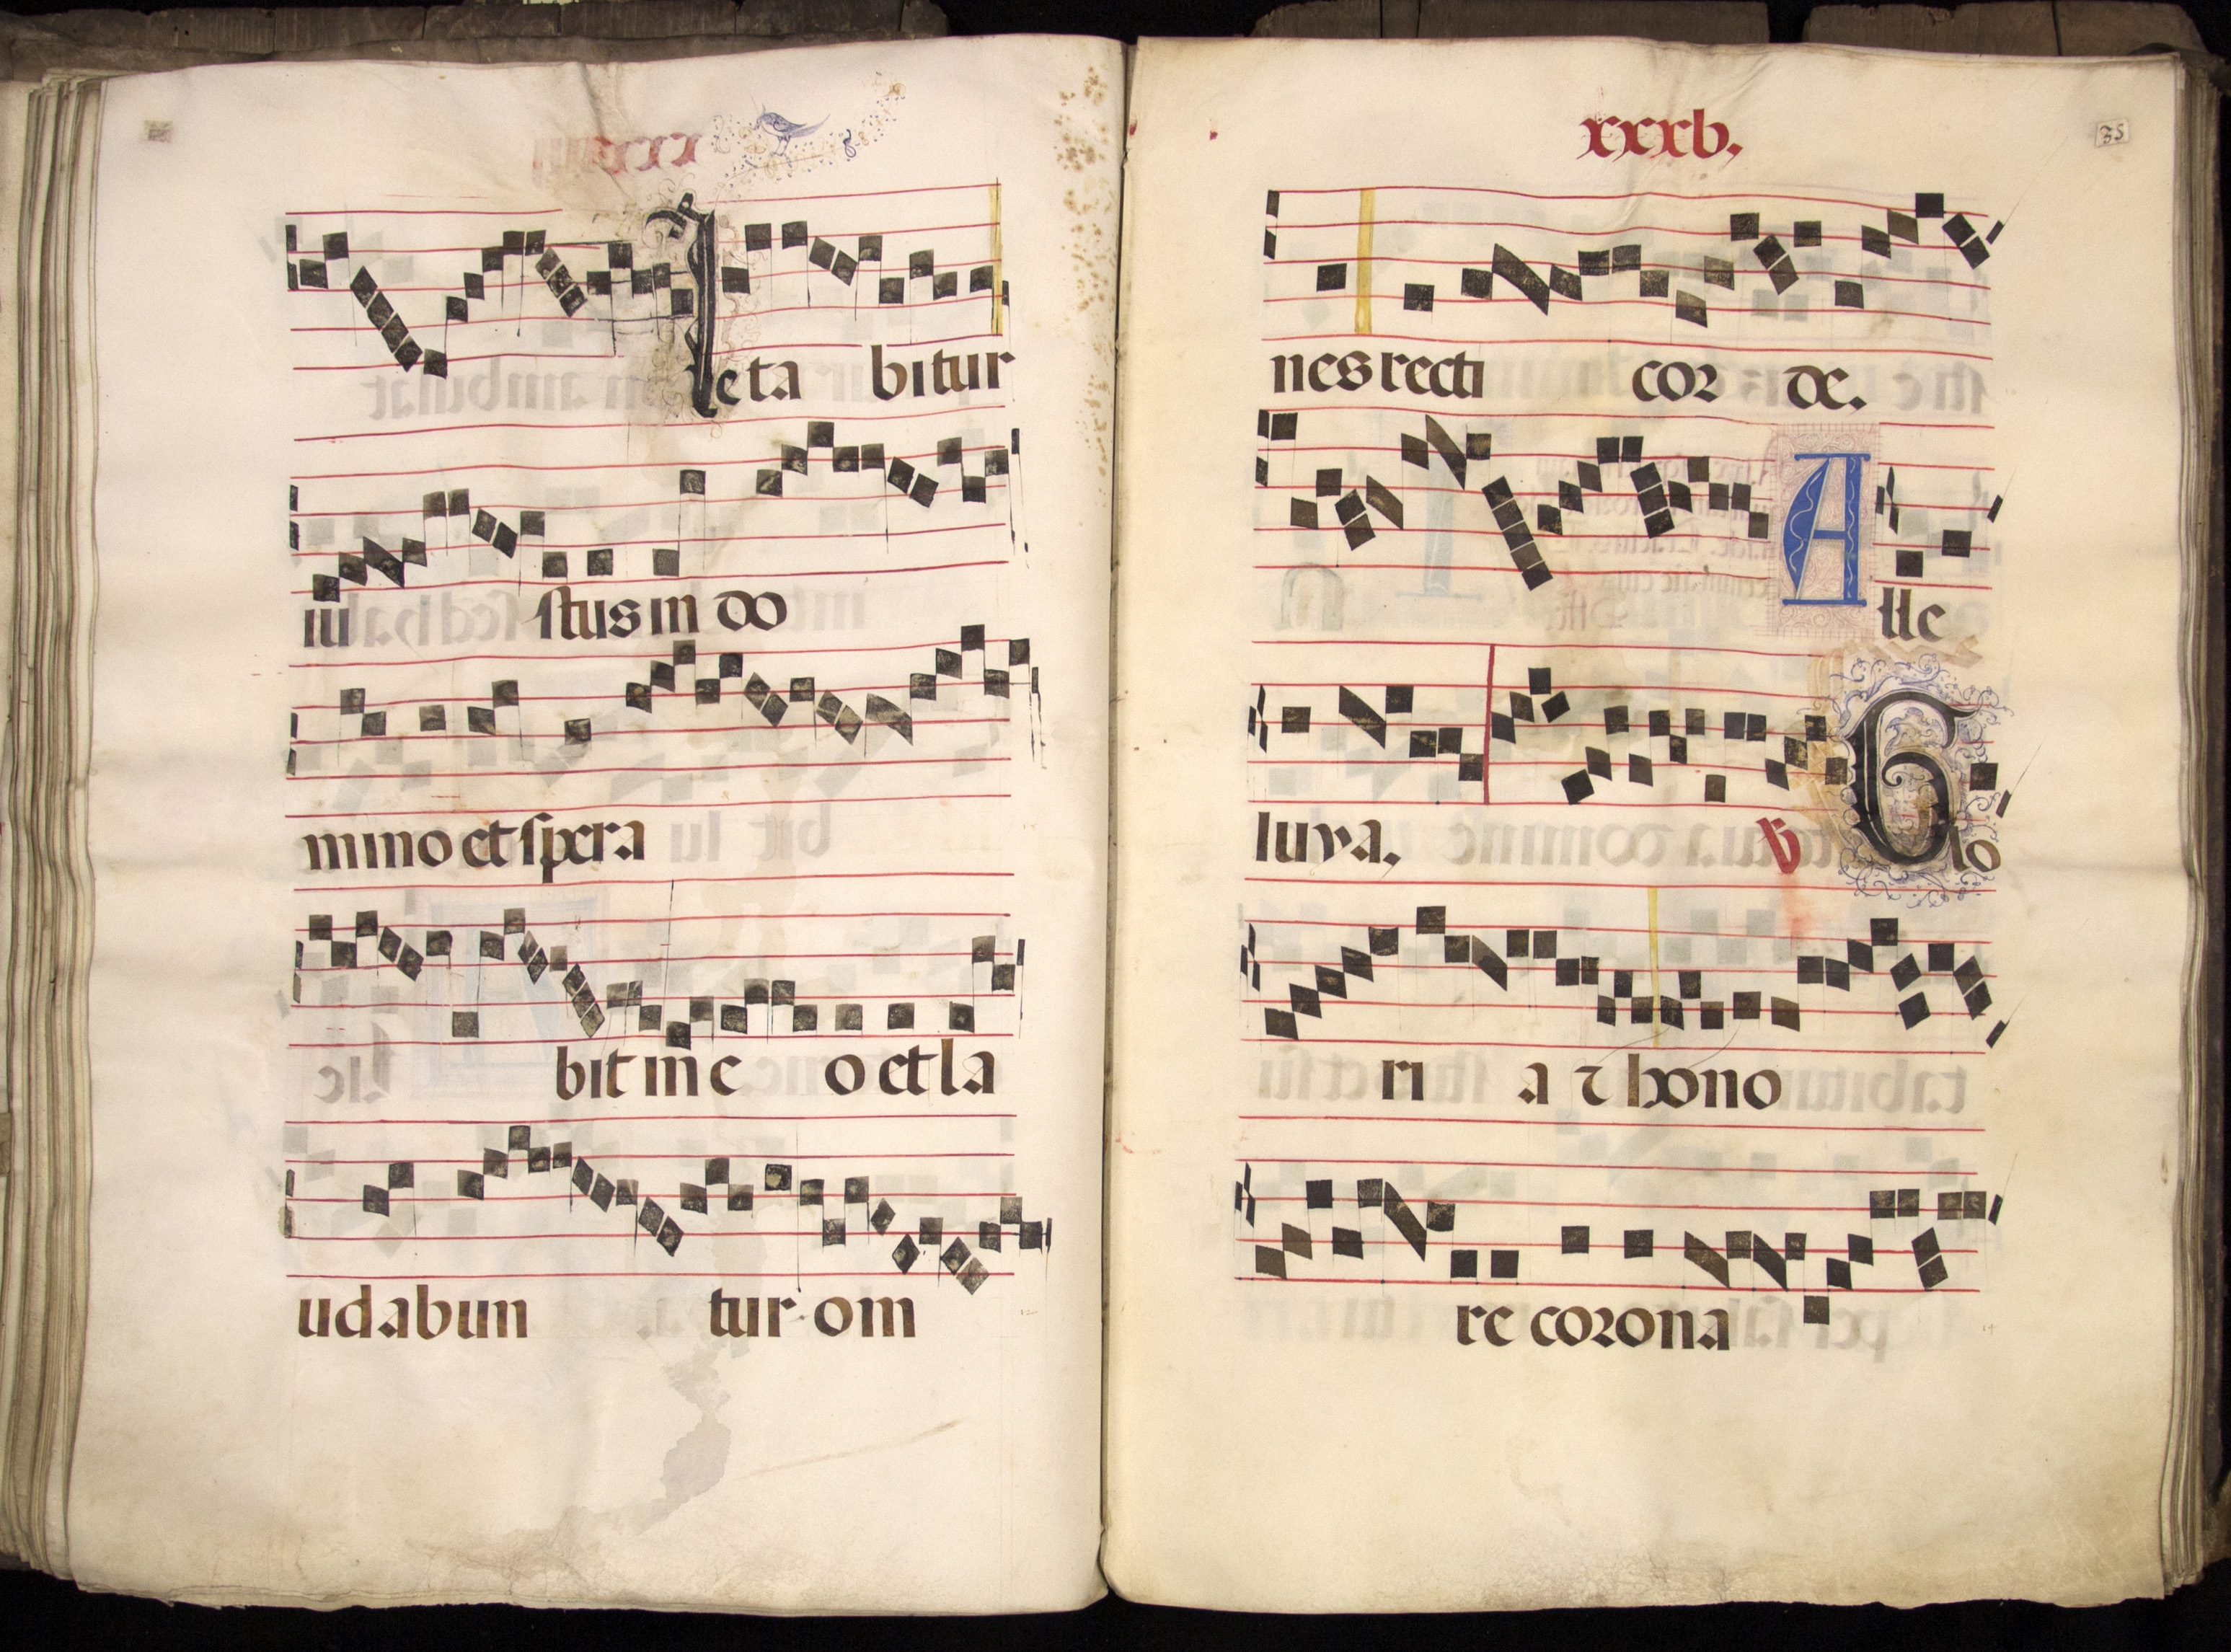 leta bitur
iu stus in do
mino et spera
bit in e o et la
udabun tur om
xxxb.
35
nes recti cor de.
Alle
luya. V Glo
ri a ⁊ hono
re corona